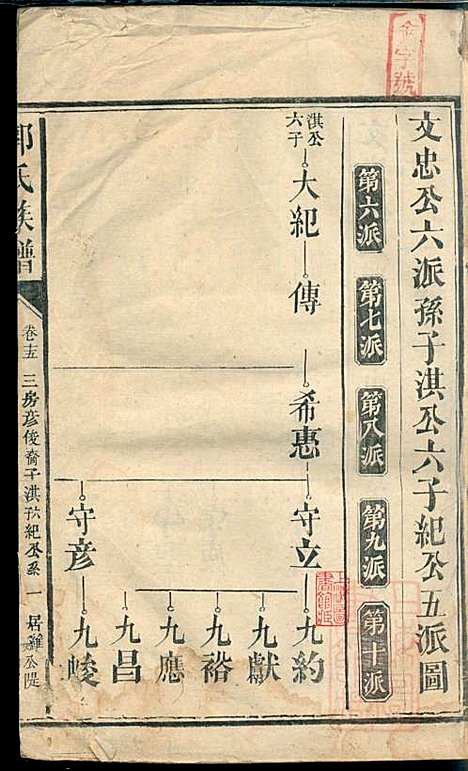 金字號
文忠公六派孫子淇公六子紀公五派圖
第六派 第七派 第八派 第九派 第十派
淇公六子
大紀 傳 希惠 守立 九約
九獻
九裕
九應
九昌
守彦 九峻
郭氏族譜 卷十五 三房彦俊裔子淇六紀公系 一 居雒公隄